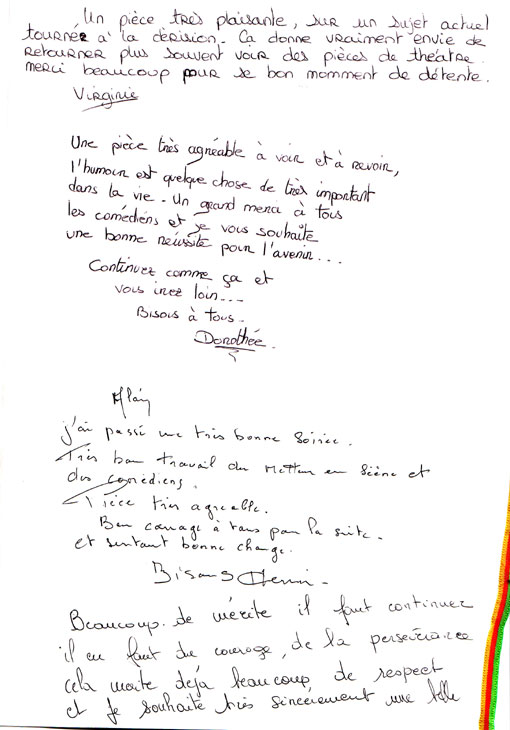 Un pièce très plaisante, sur un sujet actuel
tournée à la dérision. Ça donne vraiment envie de
retourner plus souvent voir des pièces de théatre.
merci beaucoup pour se bon momment de détente.
Virginie
Une pièce très agréable à voir et à revoir,
l'humour est quelque chose de très important
dans la vie. Un grand merci à tous
les comédiens et je vous souhaite
une bonne réussite pour l'avenir...
Continuez comme ça et
vous irez loin...
Bisous à tous.
Dorothée
Alain
j'ai passé une très bonne soirée.
Très bon travail du Metteur en Scène et
des comédiens.
Pièce très agréable.
Bon courage à tous pour la suite.
et surtout bonne chance.
Bisous
Beaucoup de mérite il faut continuer
il en faut du courage, de la persévérance
cela mérite déjà beaucoup de respect
et je souhaite très sincèrement une belle